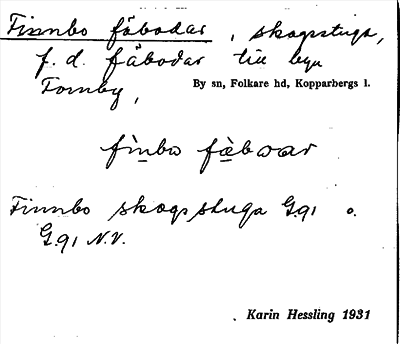 Finnbo fäbodar, skogsstuga,
f.d. fäbodar till byn
Fornby, By sn, Folkare hd, Kopparbergs l.
finbo fäboar
Finnbo skogsstuga G.91 o.
G.91 N.V.
. Karin Hessling 1931